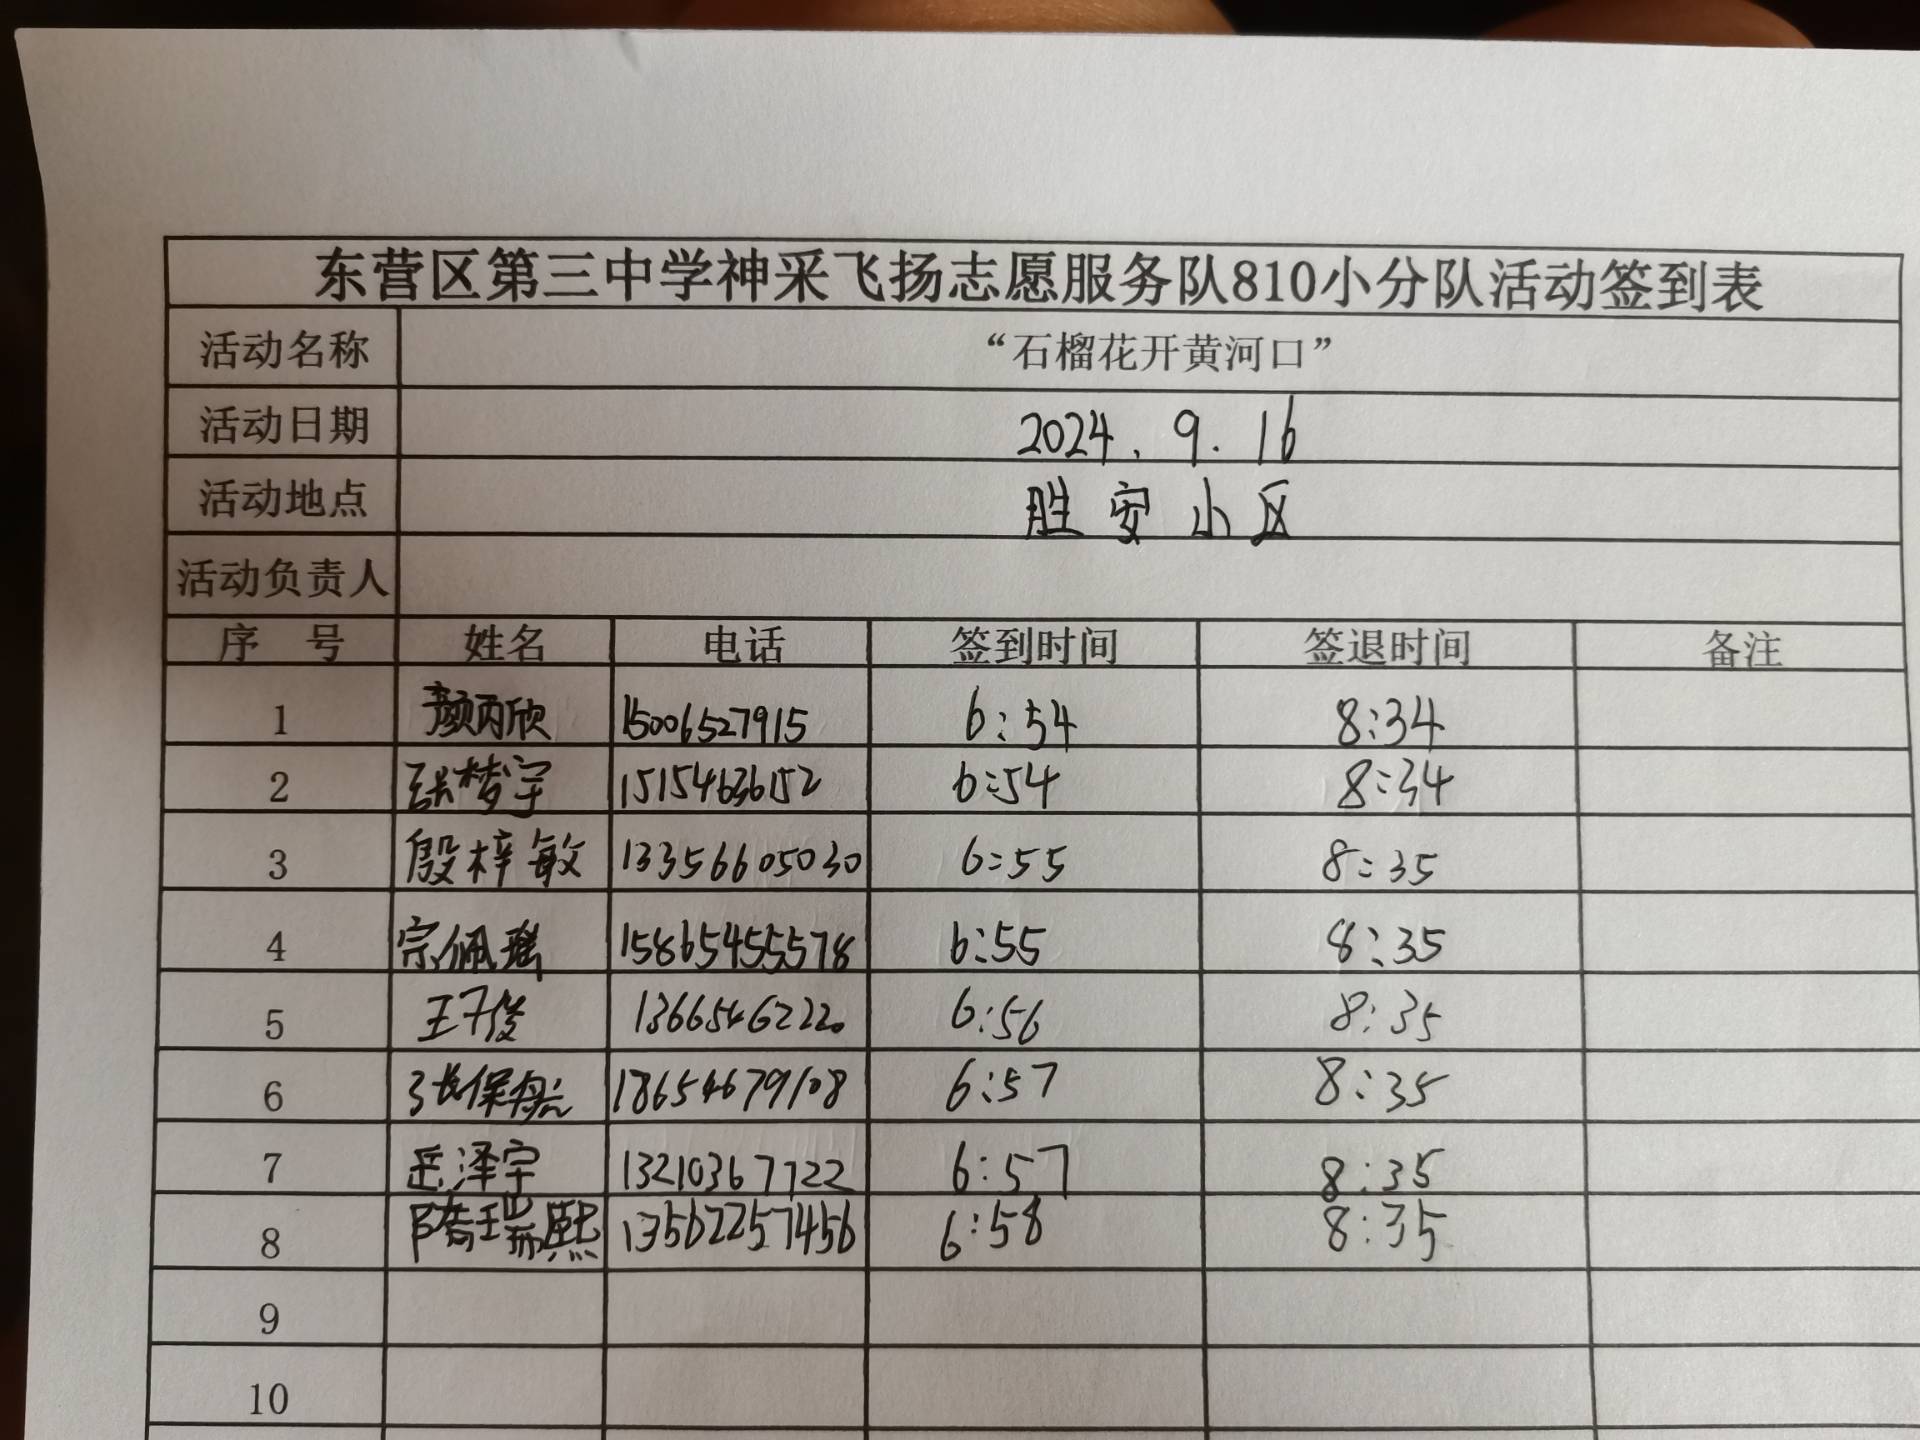 东营区第三中学神采飞扬志愿服务队810小分队活动签到表
活动名称 “石榴花开黄河口”
活动日期 2024.9.16
活动地点 胜安小区
活动负责人
序 号 姓名 电话 签到时间 签退时间 备注
1 颜丙欣 15006527915 6:54 8:34
2 张梦宇 15154636152 6:54 8:34
3 殷梓敏 13356605030 6:55 8:35
4 宗佩瑶 15865455578 6:55 8:35
5 王子俊 13665462220 6:56 8:35
6 张保 18654679108 6:57 8:35
7 岳泽宇 13210367722 6:57 8:35
8 瑞熙 13562257456 6:58 8:35
9
10